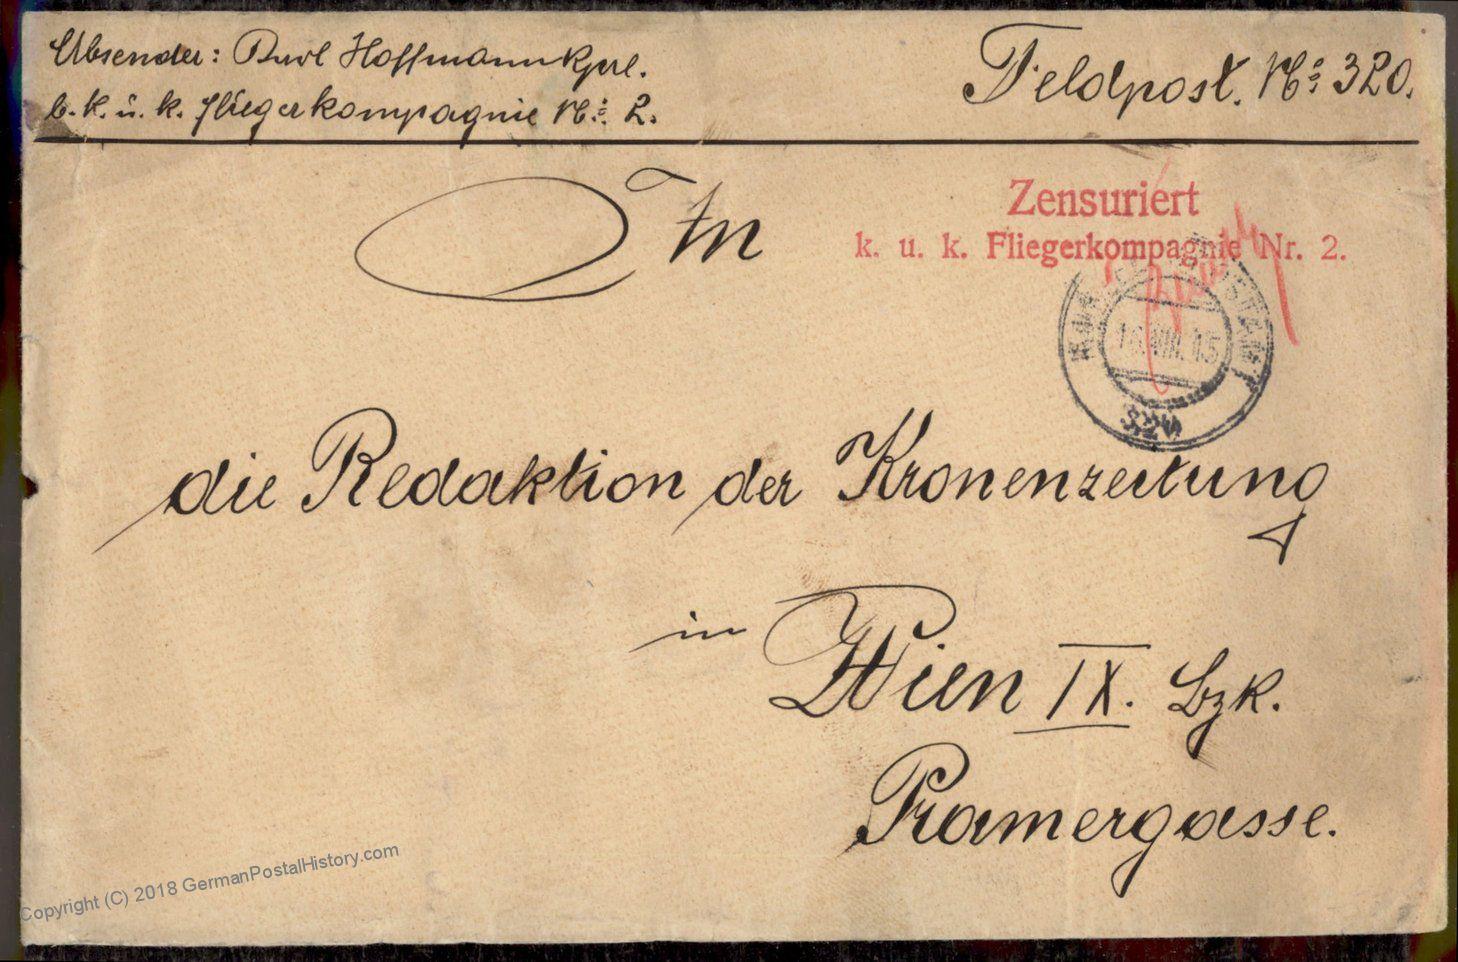 Absender: Karl Hoffmann Kprl.
b. k. u. k. Fliegerkompagnie No: 2.
Feldpost. No: 320.
An
Zensuriert
k. u. k. Fliegerkompagnie Nr. 2.
16.VIII.15
320
die Redaktion der Kronenzeitung
in
Wien IX. Bzk.
Pramergasse.
Copyright (C) 2018 GermanPostalHistory.com